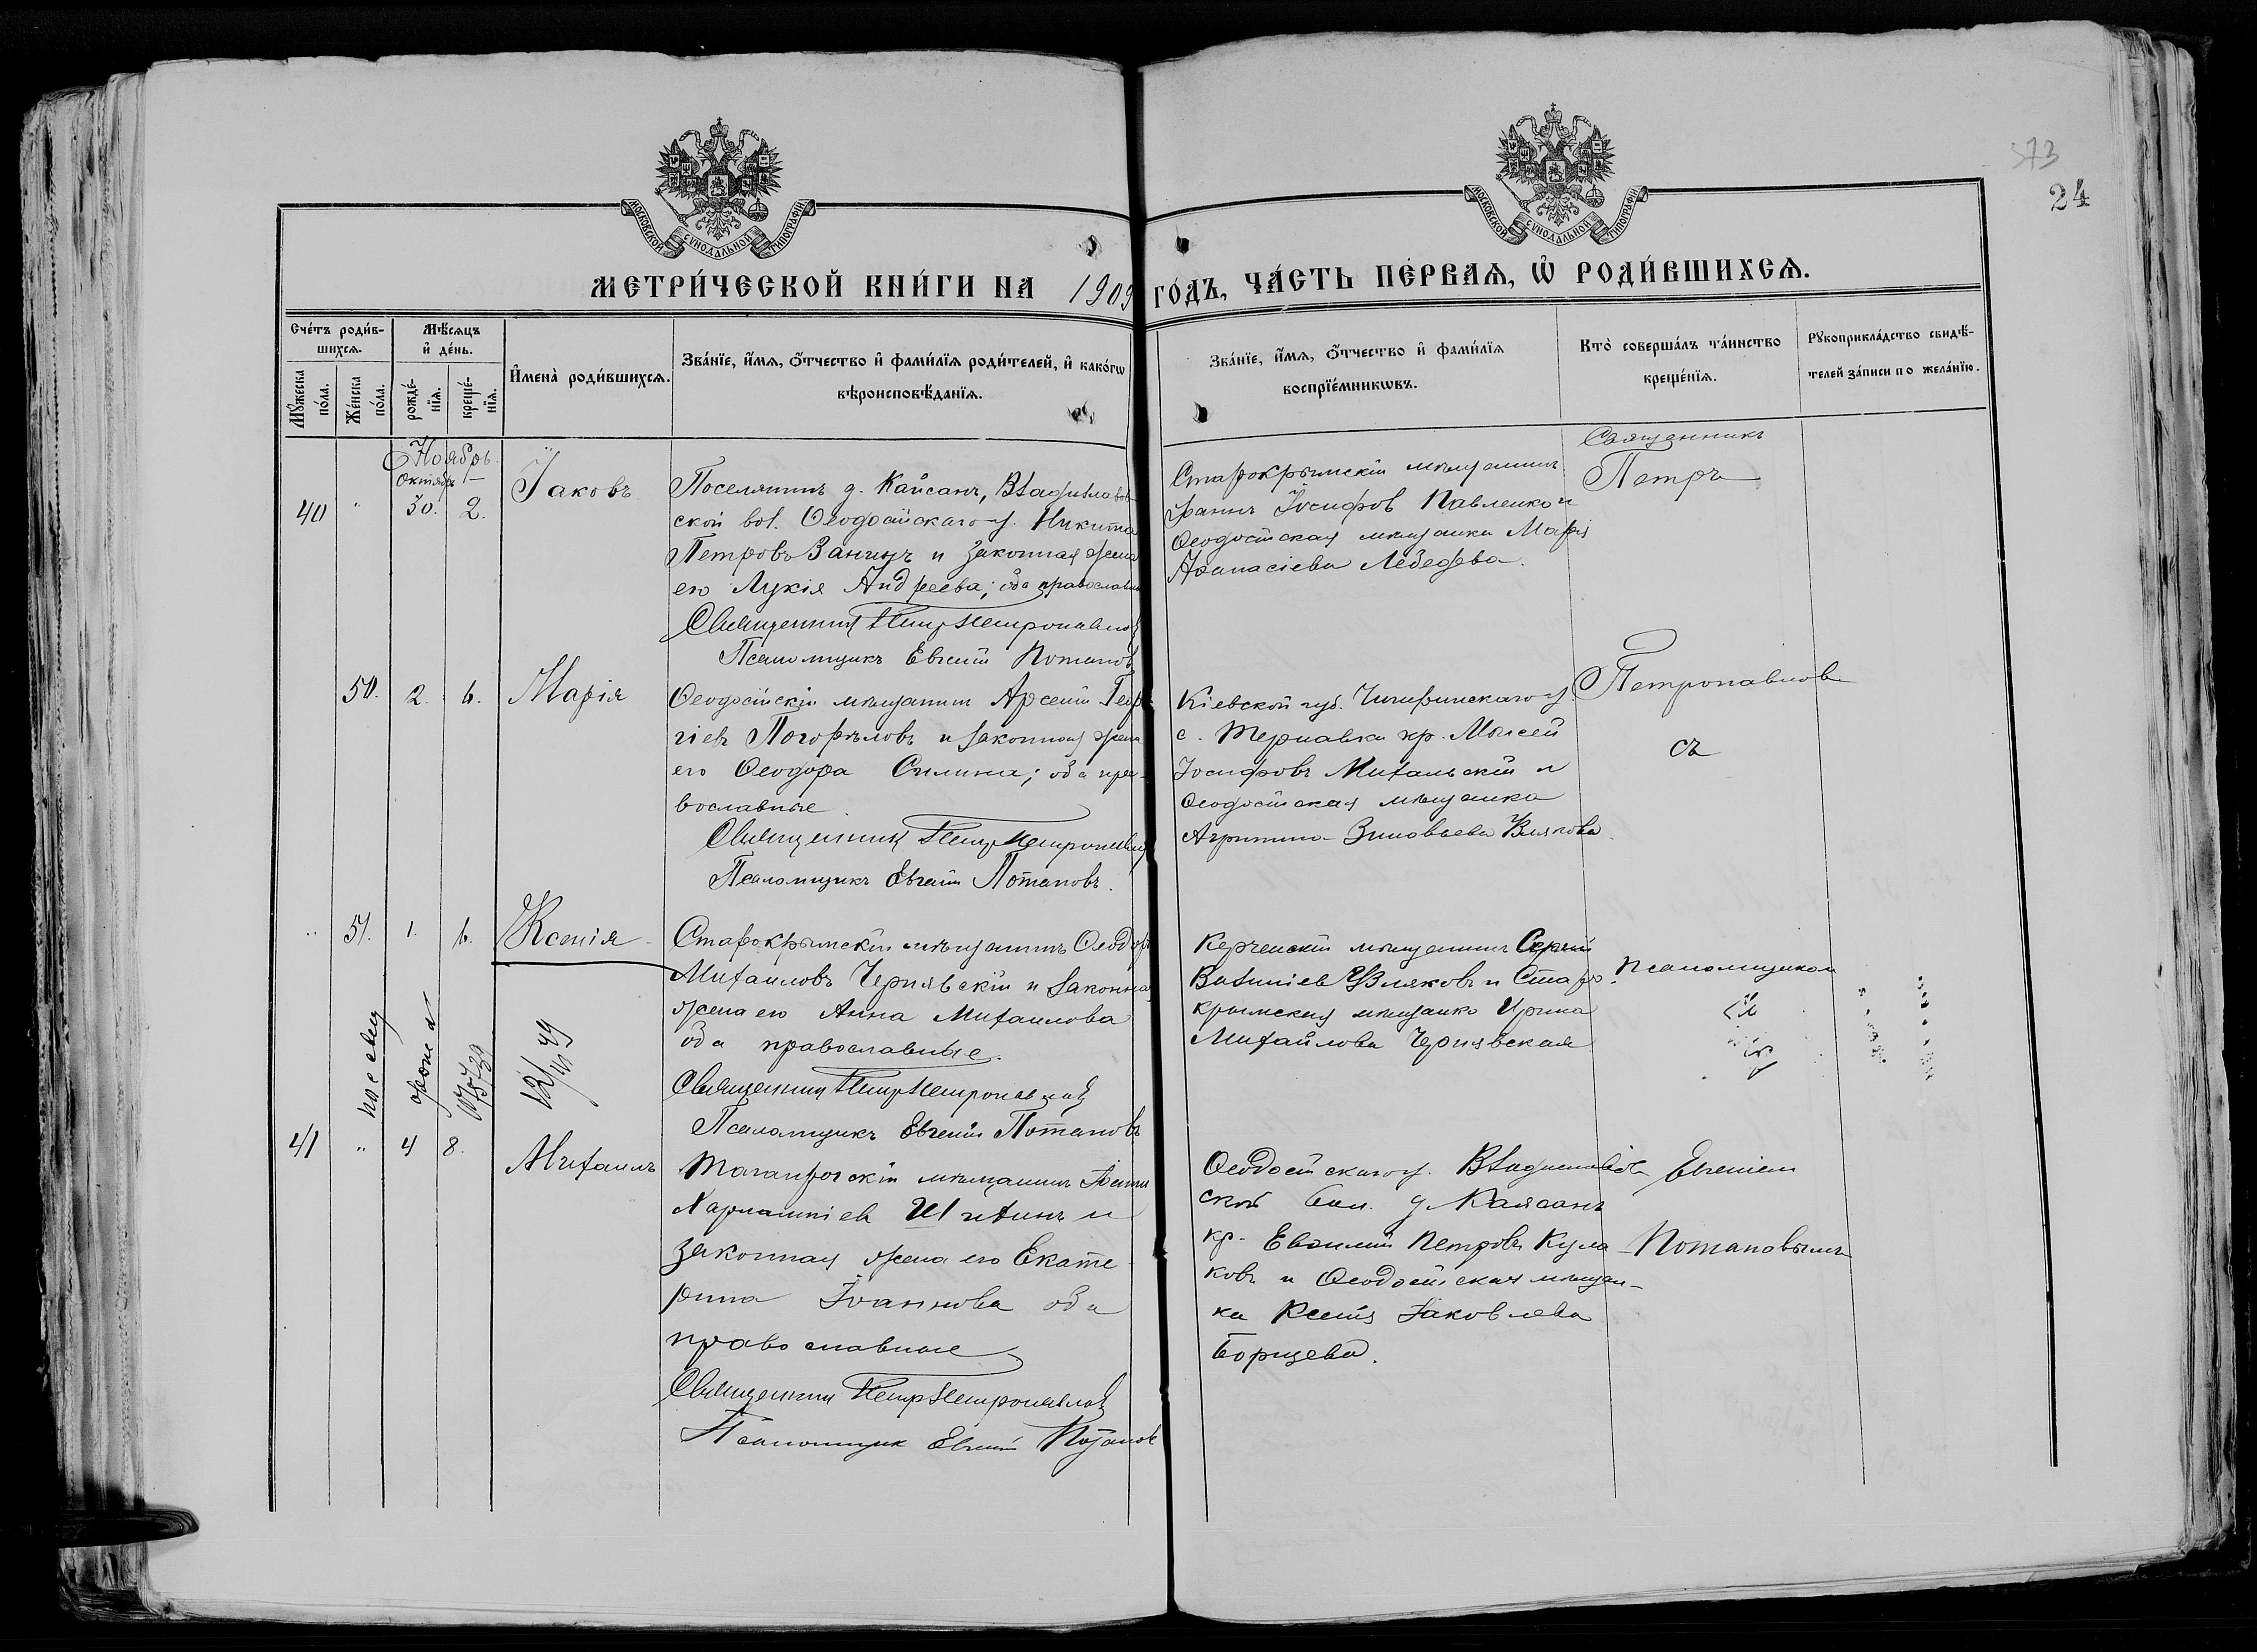 573
24
МОСКОВСКОЙ СУНОДАЛЬНОЙ ТИПОГРАФІИ
МОСКОВСКОЙ СУНОДАЛЬНОЙ ТИПОГРАФІИ
МЕТРИ́ЧЕСКОЙ КНИ́ГИ НА 1909 ГО́ДЪ, ЧА́СТЬ ПЕ́РВАѦ, Ѡ҆ РОДИ́ВШИХСѦ.
Сче́тъ роди́в-
шихсѧ.
Мꙋ́жеска по́ла.
Же́нска по́ла.
Мѣ́сѧцъ
и҆ де́нь.
рожде́-
нїѧ.
креще́-
нїѧ.
И҆мена̀ роди́вшихсѧ.
Зва́нїе, и҆́мѧ, ѻ҆́тчество и҆ фами́лїѧ роди́телей, и҆ како́гѡ
вѣроисповѣ́данїѧ.
Зва́нїе, и҆́мѧ, ѻ҆́тчество и҆ фами́лїѧ
воспрїе́мникѡвъ.
Кто̀ соверша́лъ та́инство
креще́нїѧ.
Рꙋкоприкла́дство свидѣ́-
телей за́писи по жела́нїю.
Ноябрь
Октябрь
40 " 30. 2. Іаковъ
Поселянинъ д. Кайсанъ, Владиславов
ской вол. Ѳеодосійскаго у. Никита
Петровъ Занинъ и законная жена
его Лукія Андреева; оба православн
Священникъ Петръ Петропавловъ
Псаломщикъ Евгеній Потаповъ
Старокрымскій мѣщанинъ
Іосифов Павленко и
Ѳеодосійская мѣщанка Марія
Аѳанасіева Лебедева.
Священникъ
Петръ
50. 2. 6. Марія
Ѳеодосійскій мѣщанинъ Арсеній Геор
гіевъ Погорѣловъ и законная жена
его Ѳеодора Силина; оба пра-
вославные.
Священникъ Петръ Петропавловъ
Псаломщикъ Евгеній Потаповъ.
Кіевской губ. Чигиринскаго у.
с. Терновка кр. Моисей
Іосифовъ Михальскій и
Ѳеодосійская мѣщанка
Агрипина Зиновьева
Петропавлов
съ
" 51. 1. 6. Ксенія
Старокрымскій мѣщанинъ Ѳеодоръ
Михаиловъ Чернявскій и законная
жена его Анна Михаилова
оба православные.
Священникъ Петръ Петропавловъ
Псаломщикъ Евгеній Потаповъ
Керченскій мѣщанинъ Сергій
и Старо-
крымская мѣщанка Ирина
Михайлова Чернявская
псаломщиком
41 " 4 8. Михаилъ
Таганрогскій мѣщанинъ
Харлампіевъ и
законная жена его Екате
рина Іоаннова оба
православные
Священникъ Петръ Петропавловъ
Псаломщик Евгеній Потапов
Ѳеодосійскаго у. Владиславов
ской вол. д. Кайсанъ
кр. Петровъ Кула
ковъ и Ѳеодосійская мѣщан-
ка Ксенія Іаковлева
Борщева.
Евгеніем
Потаповымъ